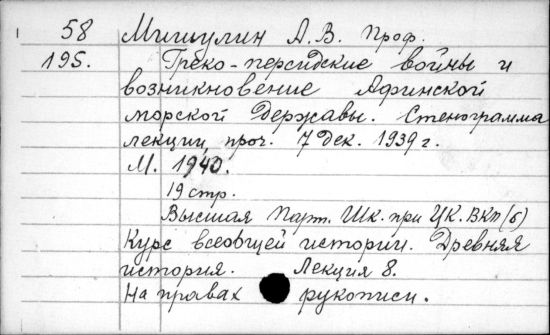 58 Мишулин А. В. Проф.
195. Греко-персидские войны и
возникновение Афинской
морской Державы. Стенограмма
лекции, проч. 7 Дек. 1939 г.
М. 1940.
19 стр.
Высшая Парт. Шк. при ЦК. ВКП(б)
Курс всеобщей истории. Древняя
история. Лекция 8.
На правах рукописи.